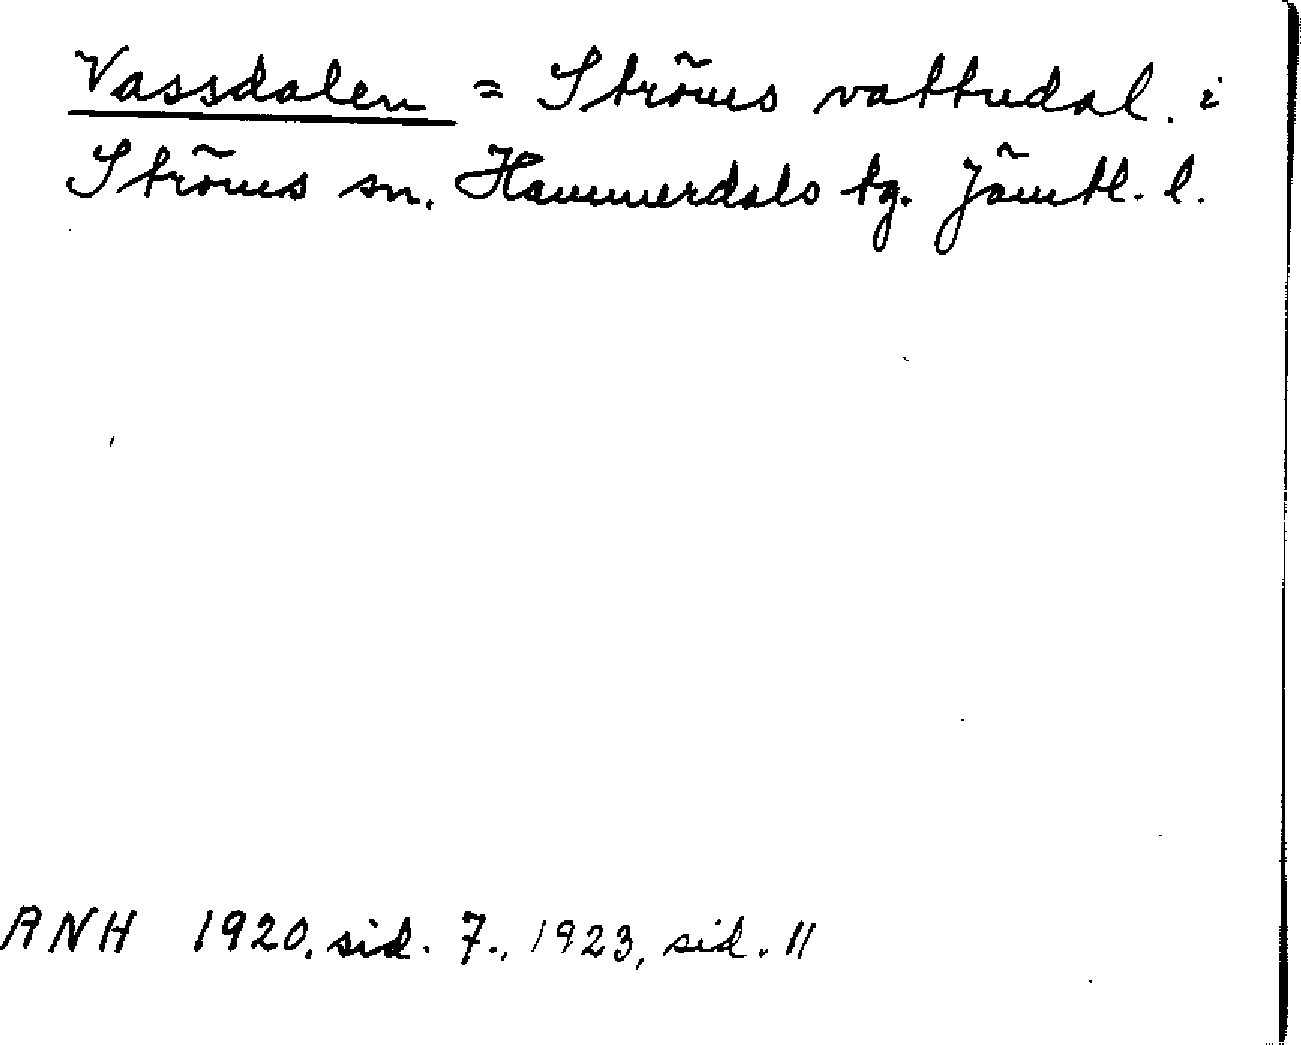 Vassdalen = Ströms vattudal. i
Ströms sn. Hammerdals tg. Jämtl. l.
ANH 1920. sid. 7., 1923, sid. 11